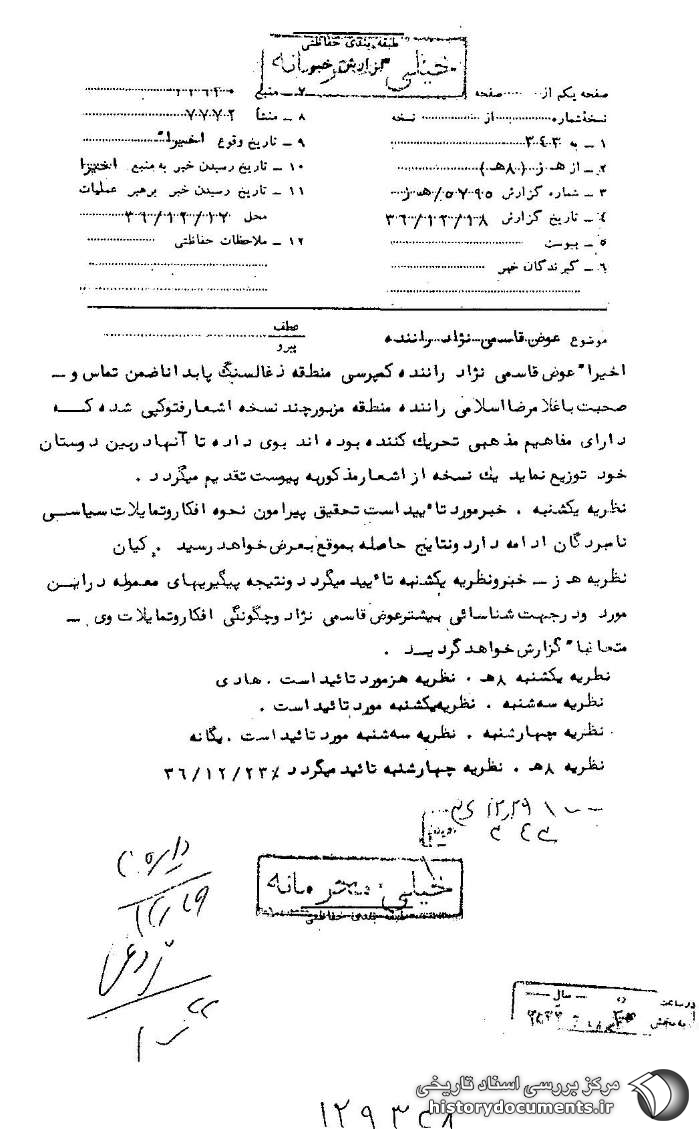 طبقه بندی حفاظتی
خیلی محرمانه
گزارش خبر
صفحه یکم از صفحه
نسخه شماره از نسخه
۱ ـ به ۳۴۳
۲ ـ از هـ ز (۸هـ)
۳ ـ شماره گزارش ۵۷۹۵/هـ ز
۴ ـ تاریخ گزارش ۳۶/۱۲/۱۸
۵ ـ پیوست
۶ ـ گیرندگان خبر
۷ ـ منبع
۸ ـ منشأ ۷۷۷۲
۹ ـ تاریخ وقوع اخیراً
۱۰ ـ تاریخ رسیدن خبر به منبع اخیرا
۱۱ ـ تاریخ رسیدن خبر برهبر عملیات
محل ۳۶/۱۲/۱۷
۱۲ ـ ملاحظات حفاظتی
موضوع عوض قاسمی نژاد راننده
عطف
پیرو
اخیراً عوض قاسمی نژاد راننده کمپرسی منطقه ذغالسنگ پابدانا ضمن تماس و ـ
صحبت با غلامرضا اسلامی راننده منطقه مزبور چند نسخه اشعار فتوکپی شده کـه
دارای مفاهیم مذهبی تحریك کننده بوده اند بوی داده تا آنها در بین دوستان
خود توزیع نماید یك نسخه از اشعار مذکور به پیوست تقدیم میگردد .
نظریه یکشنبه . خبر مورد تائید است تحقیق پیرامون نحوه افکار و تمایلات سیاسی
نامبردگان ادامه دارد و نتایج حاصله بموقع بعرض خواهد رسید . کیان
نظریه هـ ز ـ خبر و نظریه یکشنبه تائید میگردد و نتیجه پیگیریهای معموله در ایـن
مورد ودر جهت شناسائی بیشتر عوض قاسمی نژاد و چگونگی افکار و تمایلات وی ـ
متعاقباً گزارش خواهد گردیـد .
نظریه یکشنبه ۸هـ . نظریه هـ ز مورد تائید است . هادی
نظریه سه شنبه . نظریه یکشنبه مورد تائید است .
نظریه چهارشنبه . نظریه سه شنبه مورد تائید است . یگانه
نظریه ۸هـ . نظریه چهارشنبه تائید میگردد ۳۶/۱۲/۲۳
خیلی محرمانه
طبقه بندی حفاظتی
در ساعت
سال
به بخش
مرکز بررسی اسناد تاریخی
historydocuments.ir